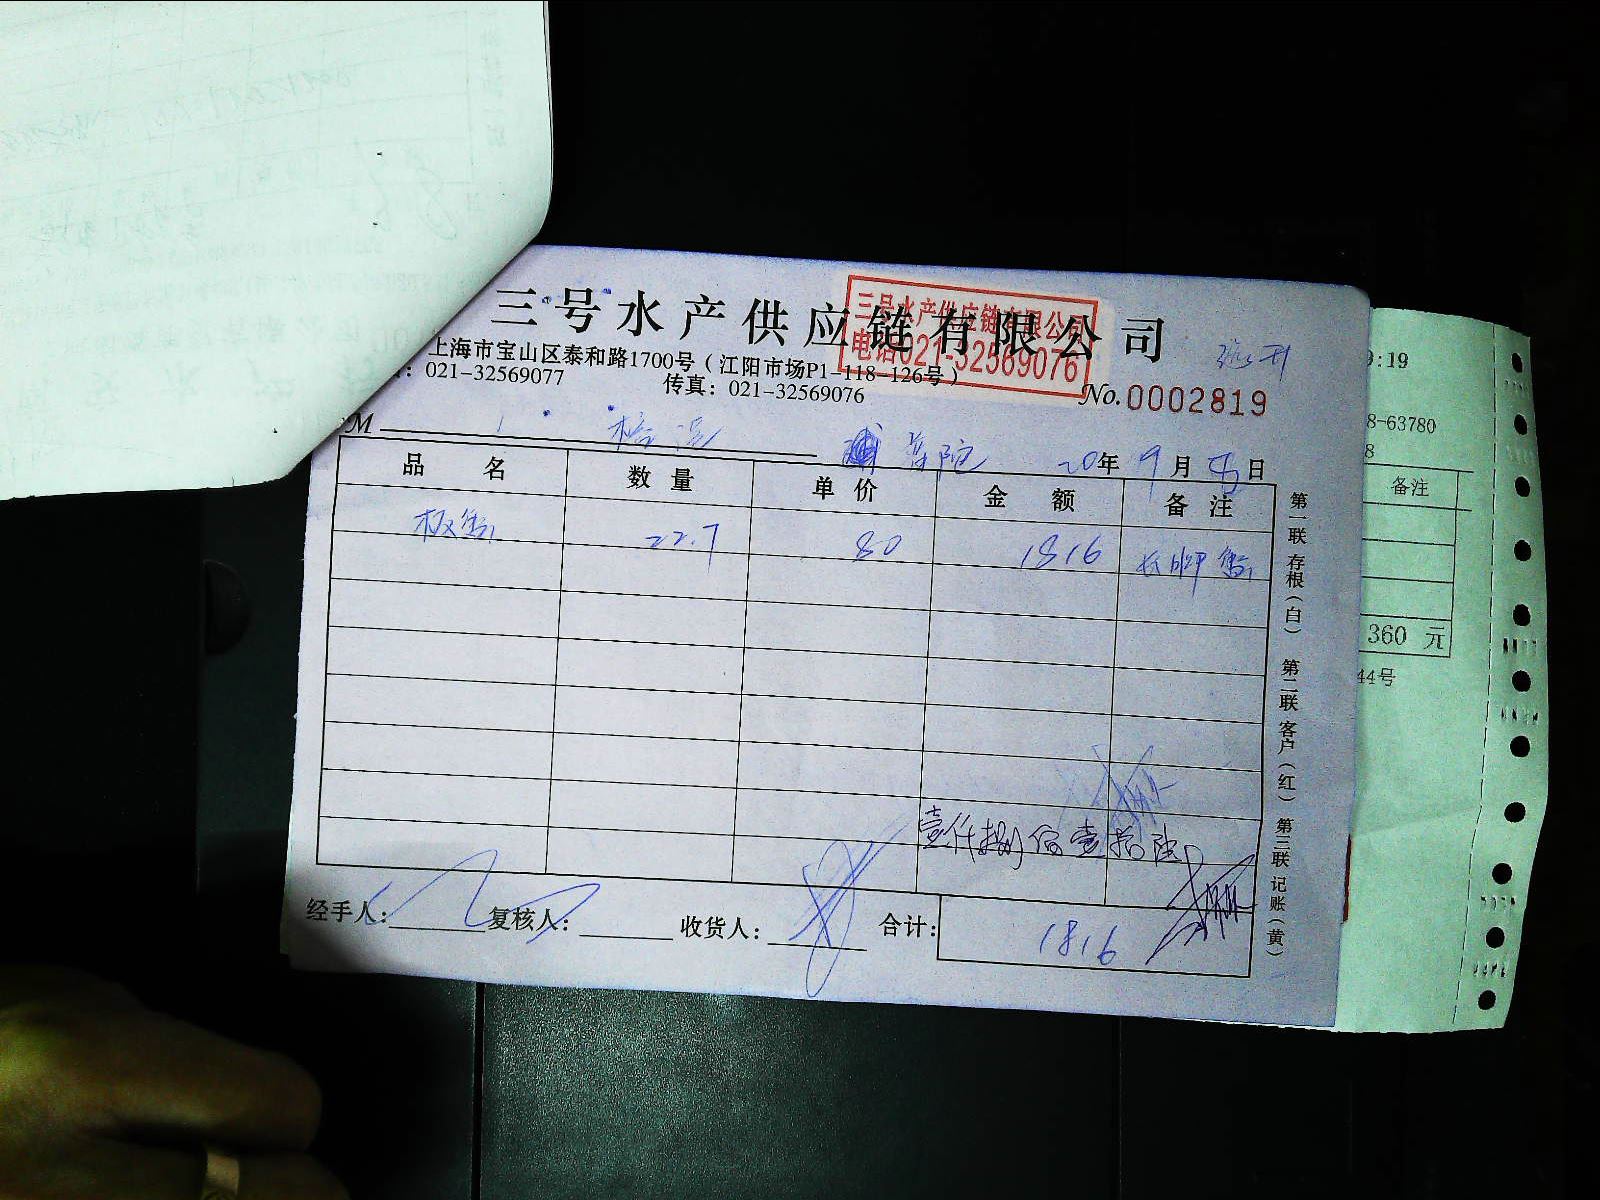 三号水产供应链有限公司
三号水产供应链有限公司
电话021-32569076
上海市宝山区泰和路1700号（江阳市场P1-118-126号）
：021-32569077 传真：021-32569076
No.0002819
M 20年9月日
品名 数量 单价 金额 备注
板鱼 22.7 80 1816 长脚鱼
壹仟捌佰壹拾陆
经手人： 复核人： 收货人： 合计： 1816
第一联 存根（白） 第二联 客户（红） 第三联 记账（黄）
9:19
8-63780
8
备注
360 元
44号